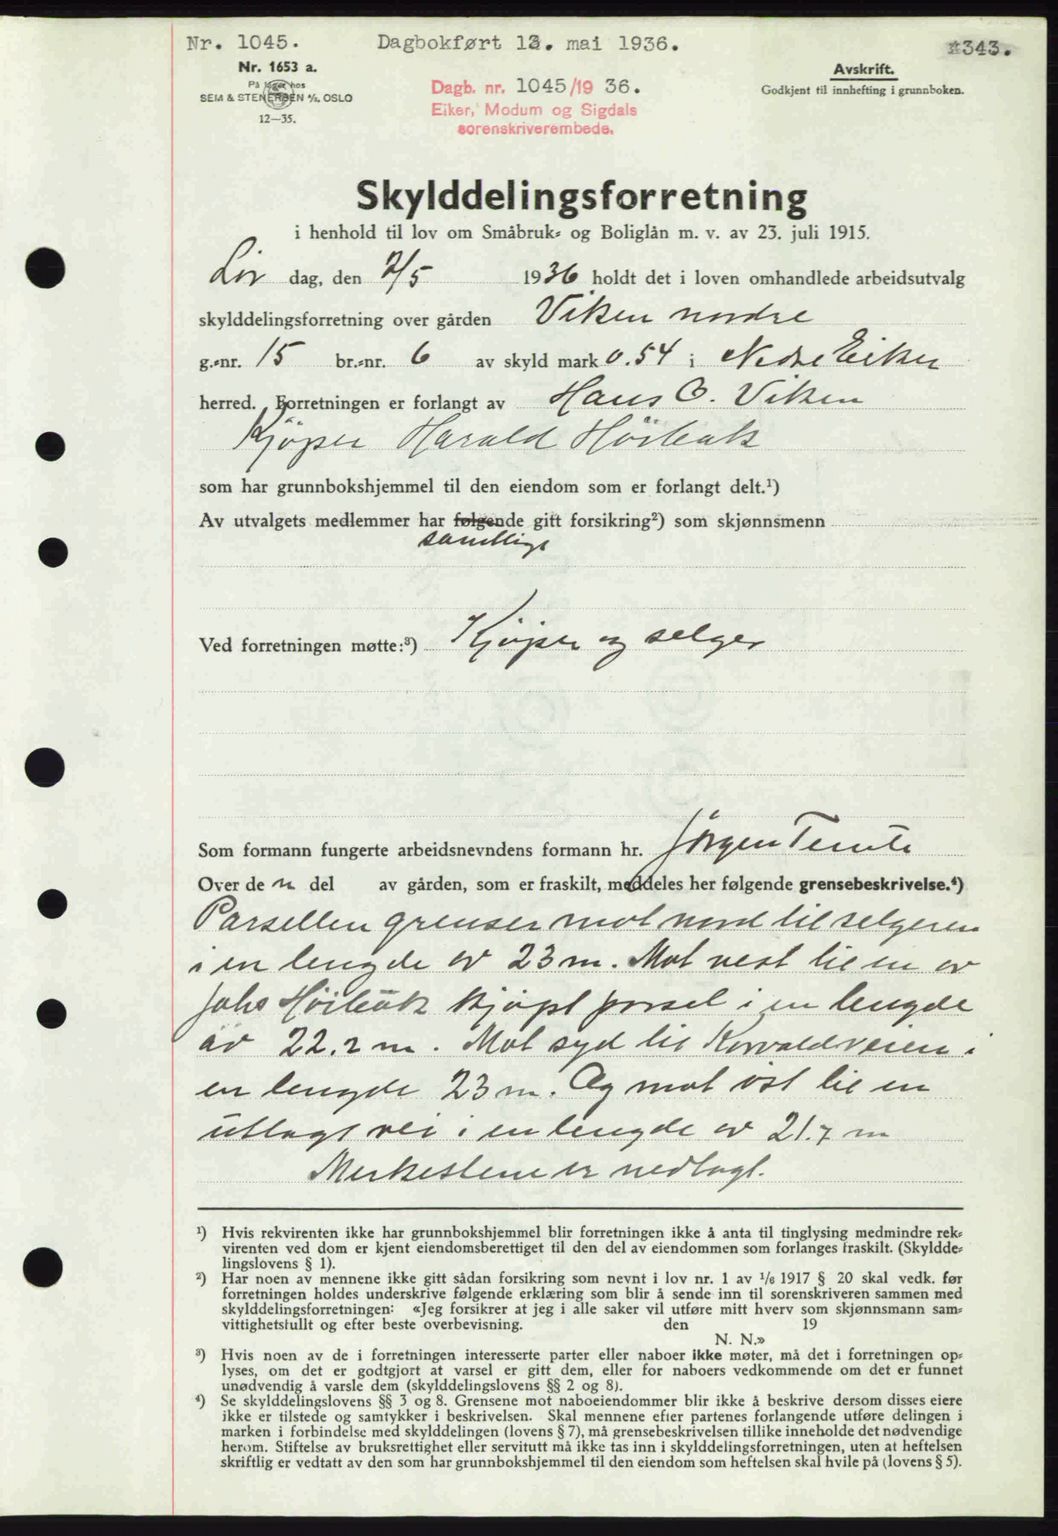 Nr. 1045. Dagbokført 12. mai 1936. 343.
Nr. 1653 a.
På lager hos
SEM & STENERSEN A/S. OSLO
12—35.
Dagb. nr. 1045/19 36.
Eiker, Modum og Sigdals
sorenskriverembede.
Avskrift.
Godkjent til innhefting i grunnboken.
Skylddelingsforretning
i henhold til lov om Småbruk- og Boliglån m. v. av 23. juli 1915.
Lør dag, den 2/5 1936 holdt det i loven omhandlede arbeidsutvalg
skylddelingsforretning over gården Viken nordre
g.-nr. 15 br.-nr. 6 av skyld mark 0.54 i Nedre Eiker
herred. Forretningen er forlangt av Hans O. Viken
Kjøper Harald Höibäk
som har grunnbokshjemmel til den eiendom som er forlangt delt.¹)
Av utvalgets medlemmer har følgende gitt forsikring²) som skjønnsmenn
samtlige
Ved forretningen møtte:³) Kjøper og selger
Som formann fungerte arbeidsnevndens formann hr. Jörgen Temte
Over de n del av gården, som er fraskilt, meddeles her følgende grensebeskrivelse.⁴)
Parsellen grenser mot nord til selgeren
i en lengde av 23 m. Mot vest til en av
Johs Höibäk kjöpt parsel i en lengde
av 22.2 m. Mot syd til Korvaldveien i
en lengde 23 m. Og mot öst til en
utlagt vei i en lengde av 21.7 m
Merkestene er nedlagt.
¹) Hvis rekvirenten ikke har grunnbokshjemmel blir forretningen ikke å anta til tinglysing medmindre rek-
virenten ved dom er kjent eiendomsberettiget til den del av eiendommen som forlanges fraskilt. (Skyldde-
lingslovens § 1).
²) Har noen av mennene ikke gitt sådan forsikring som nevnt i lov nr. 1 av 1/6 1917 § 20 skal vedk. før
forretningen holdes underskrive følgende erklæring som blir å sende inn til sorenskriveren sammen med
skylddelingsforretningen: «Jeg forsikrer at jeg i alle saker vil utføre mitt hverv som skjønnsmann sam-
vittighetsfullt og efter beste overbevisning. den 19
N. N.»
³) Hvis noen av de i forretningen interesserte parter eller naboer ikke møter, må det i forretningen op-
lyses, om det er godtgjort at varsel er gitt dem, eller for naboers vedkommende om det er funnet
unødvendig å varsle dem (skylddelingslovens §§ 2 og 8).
⁴) Se skylddelingslovens §§ 3 og 8. Grensene mot naboeiendommer blir ikke å beskrive dersom disses eiere
ikke er tilstede og samtykker i beskrivelsen. Skal mennene efter partenes forlangende utføre delingen i
marken i forbindelse med skylddelingen (lovens § 7), må grensebeskrivelsen tillike inneholde det nødvendige
herom. Stiftelse av bruksrettighet eller servitutt må ikke tas inn i skylddelingsforretningen, uten at heftelsen
skriftlig er vedtatt av den som har grunnbokshjemmel til den eiendom som heftelsen skal hvile på (lovens § 5).